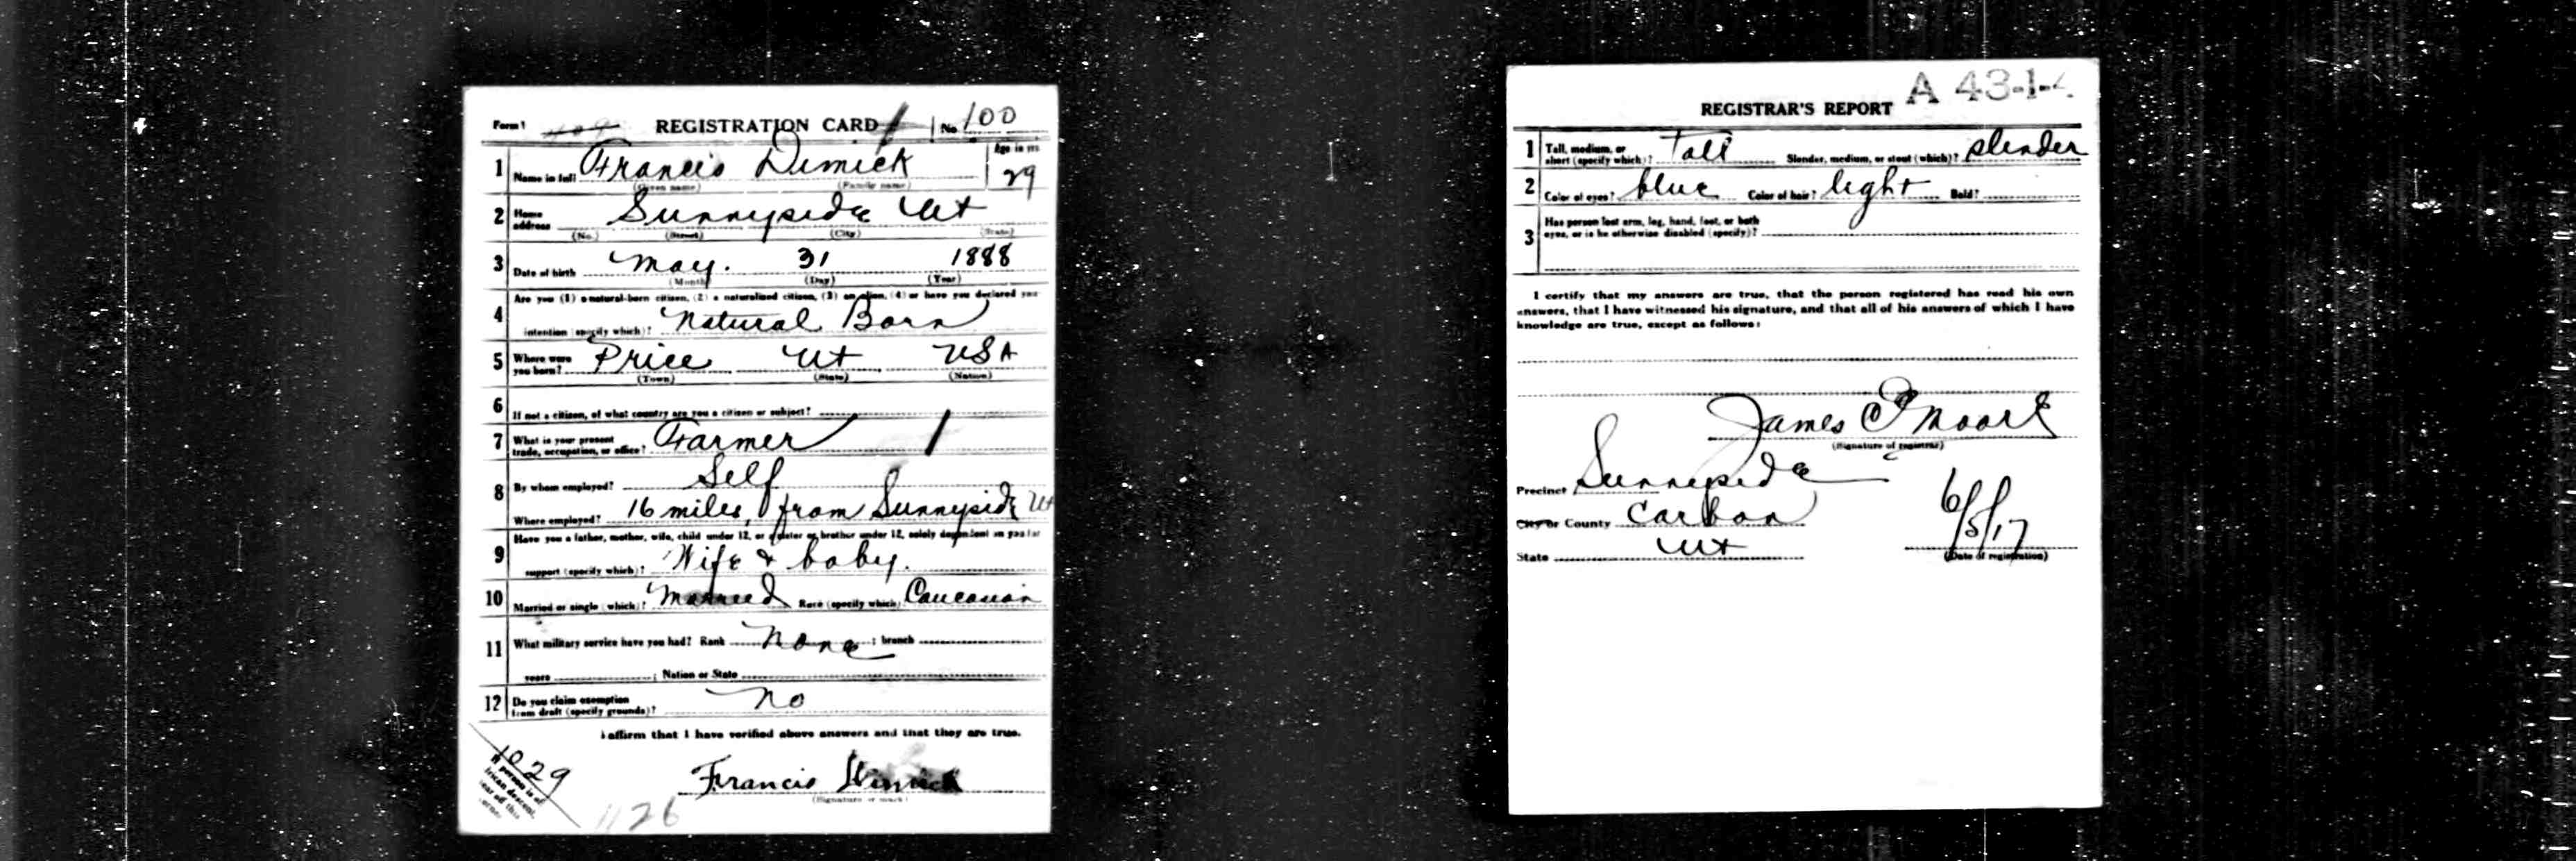 Form 1 REGISTRATION CARD No 100
1 Name in full Francis Dimick Age in yrs 29
(Given name) (Family name)
2 Home address Sunnyside Ut
(No.) (Street) (City) (State)
3 Date of birth May. 31 1888
(Month) (Day) (Year)
4 Are you (1) a natural-born citizen, (2) a naturalized citizen, (3) an alien, (4) or have you declared your
intention (specify which)? Natural Born
5 Where were you born? Price Ut USA
(Town) (State) (Nation)
6 If not a citizen, of what country are you a citizen or subject?
7 What is your present trade, occupation, or office? Farmer
8 By whom employed? Self
Where employed? 16 miles, from Sunnyside Ut
9 Have you a father, mother, wife, child under 12, or a sister or brother under 12, solely dependent on you for
support (specify which)? Wife & baby.
10 Married or single (which)? Married Race (specify which) Caucasian
11 What military service have you had? Rank None ; branch
years ; Nation or State
12 Do you claim exemption from draft (specify grounds)? No
I affirm that I have verified above answers and that they are true.
Francis Dimick
(Signature or mark)
1029
If person is of
African descent,
1126
A 43-1-
REGISTRAR'S REPORT
1 Tall, medium, or short (specify which)? Tall Slender, medium, or stout (which)? slender
2 Color of eyes? blue Color of hair? light Bald?
3 Has person lost arm, leg, hand, foot, or both
eyes, or is he otherwise disabled (specify)?
I certify that my answers are true, that the person registered has read his own
answers, that I have witnessed his signature, and that all of his answers of which I have
knowledge are true, except as follows:
James Moore
(Signature of registrar)
Precinct Sunnyside
City or County Carbon
State Ut
6/5/17
(Date of registration)